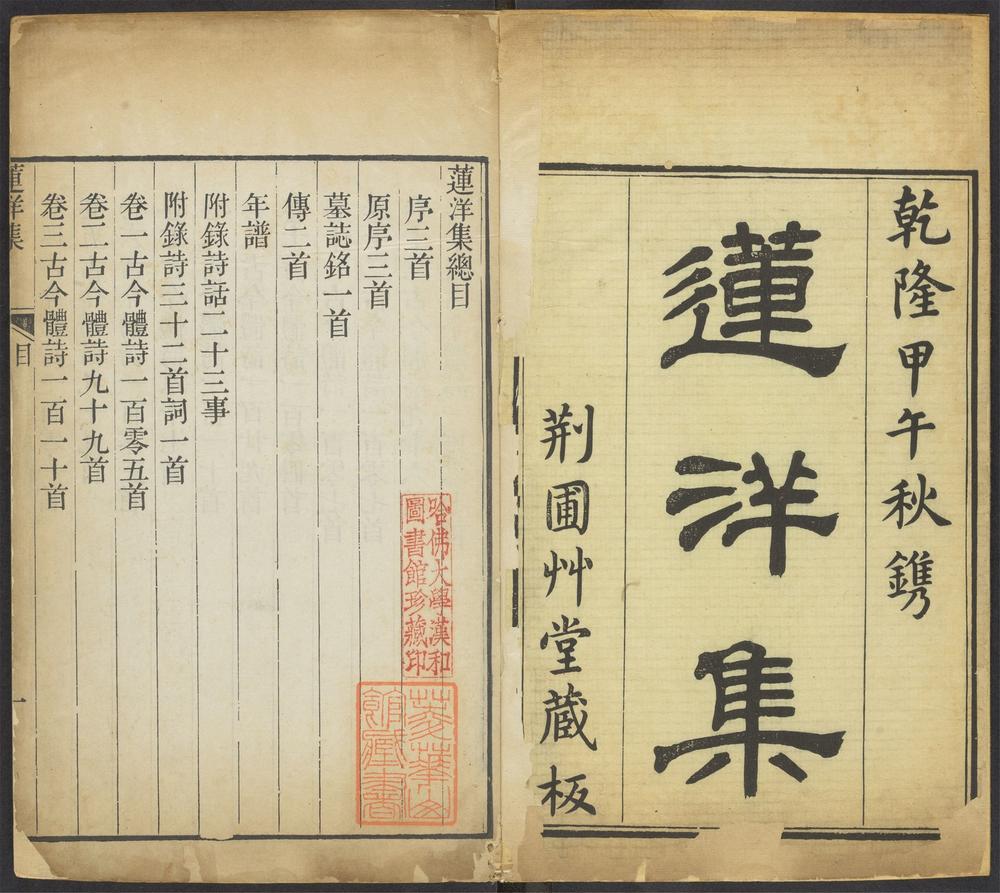 乾隆甲午秋鐫
蓮洋集
荆圃艸堂蔵板
蓮洋集總目
序三首
原序三首
墓誌銘一首
傳二首
年譜
附錄詩話二十三事
附錄詩三十二首詞一首
卷一古今體詩一百零五首
卷二古今體詩九十九首
卷三古今體詩一百一十首
蓮洋集
目
一
哈佛大學漢和
圖書館珍藏印
館藏書